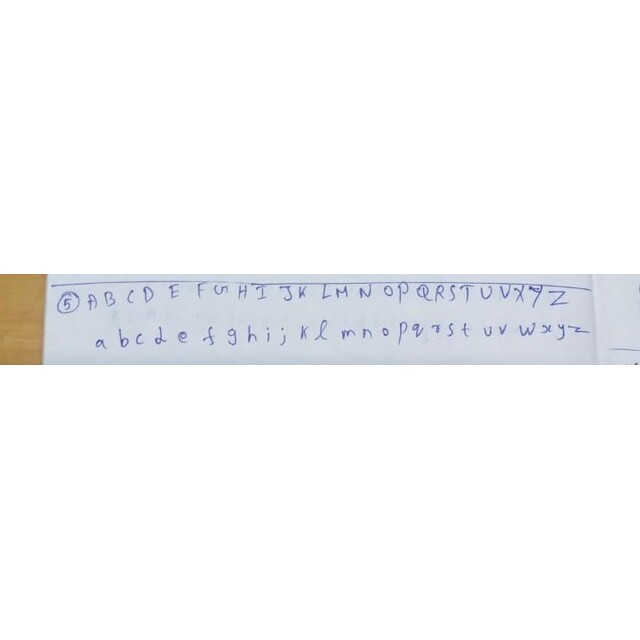 ⑤ A B C D E F G H I J K L M N O P Q R S T U V X Y Z
a b c d e f g h i j k l m n o p q r s t u v w x y z